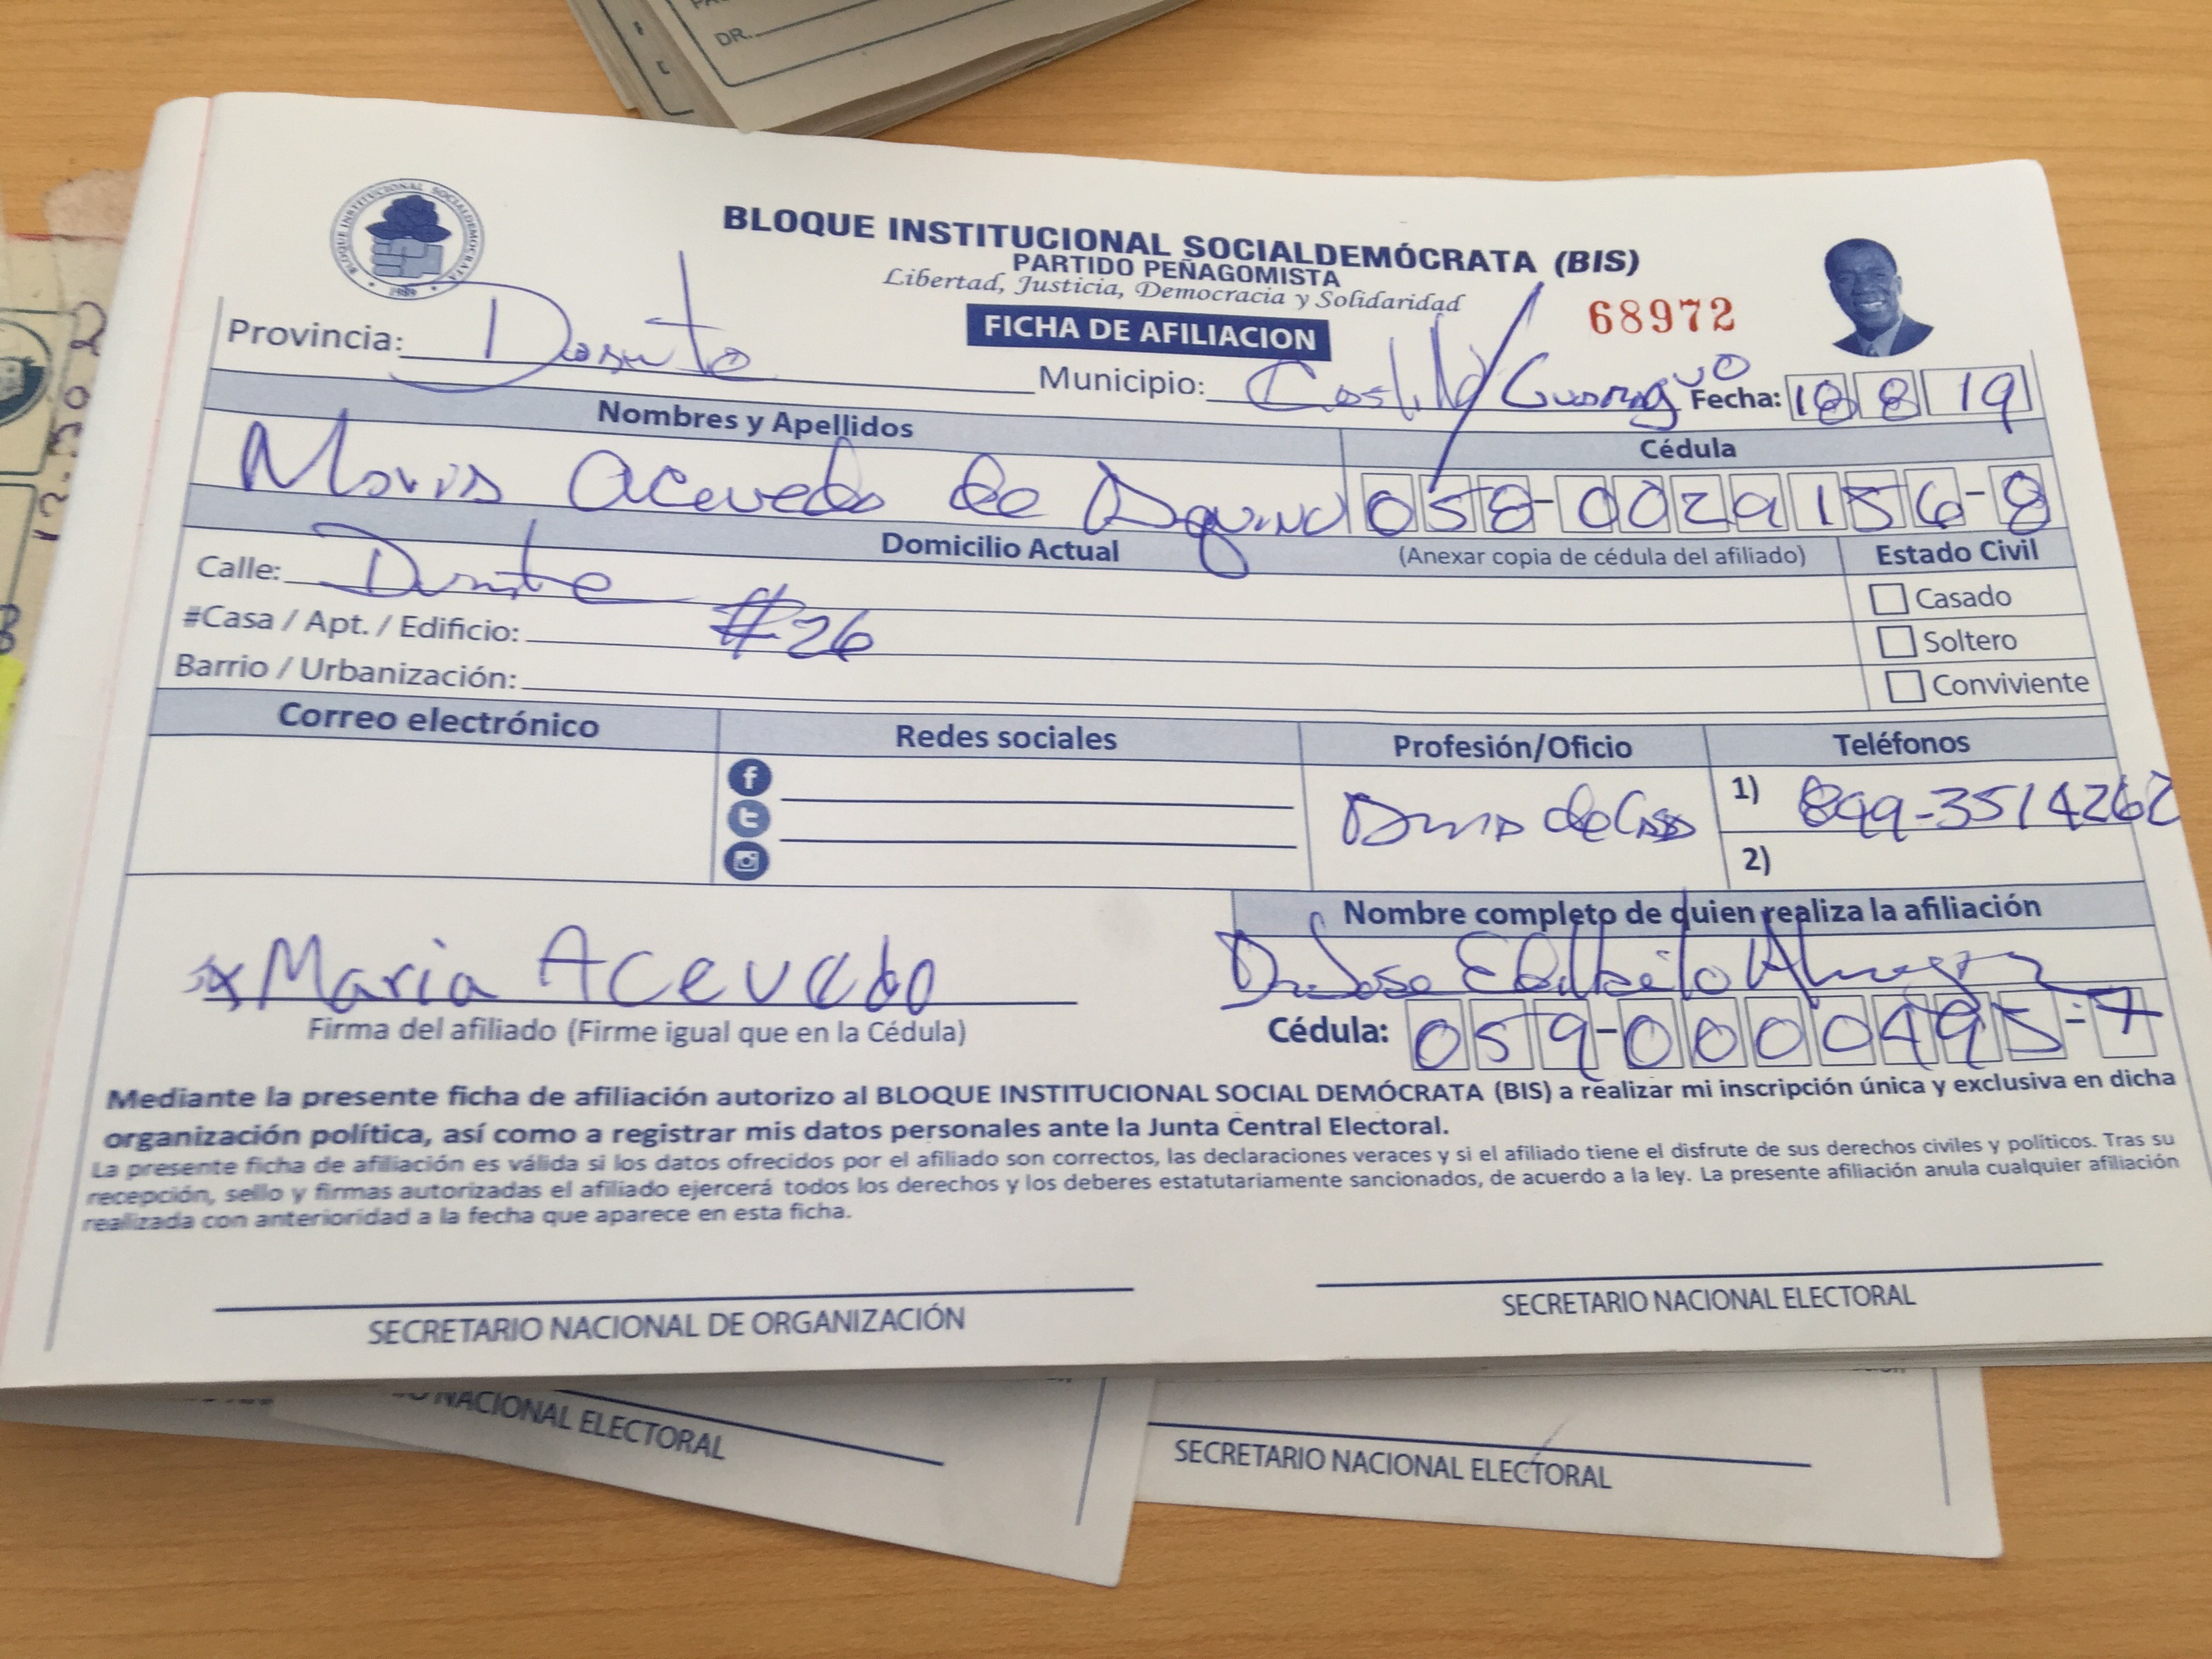 DR.
BLOQUE INSTITUCIONAL SOCIALDEMOCRATA
1989
BLOQUE INSTITUCIONAL SOCIALDEMÓCRATA (BIS)
PARTIDO PEÑAGOMISTA
Libertad, Justicia, Democracia y Solidaridad
68972
FICHA DE AFILIACION
Provincia: Duarte Municipio: Castillo/ Fecha: 18 8 19
Nombres y Apellidos Cédula
Maria Acevedo de Aquino 058-0029156-8
Domicilio Actual (Anexar copia de cédula del afiliado) Estado Civil
Calle: Duarte Casado
#Casa / Apt. / Edificio: #26 Soltero
Barrio / Urbanización: Conviviente
Correo electrónico Redes sociales Profesión/Oficio Teléfonos
Ama de Casa 1) 849-3514262
2)
Nombre completo de quien realiza la afiliación
x Maria Acevedo Dr. Jose
Firma del afiliado (Firme igual que en la Cédula) Cédula: 059-0000495-7
Mediante la presente ficha de afiliación autorizo al BLOQUE INSTITUCIONAL SOCIAL DEMÓCRATA (BIS) a realizar mi inscripción única y exclusiva en dicha
organización política, así como a registrar mis datos personales ante la Junta Central Electoral.
La presente ficha de afiliación es válida si los datos ofrecidos por el afiliado son correctos, las declaraciones veraces y si el afiliado tiene el disfrute de sus derechos civiles y políticos. Tras su
recepción, sello y firmas autorizadas el afiliado ejercerá todos los derechos y los deberes estatutariamente sancionados, de acuerdo a la ley. La presente afiliación anula cualquier afiliación
realizada con anterioridad a la fecha que aparece en esta ficha.
SECRETARIO NACIONAL DE ORGANIZACIÓN SECRETARIO NACIONAL ELECTORAL
NACIONAL ELECTORAL
SECRETARIO NACIONAL ELECTORAL